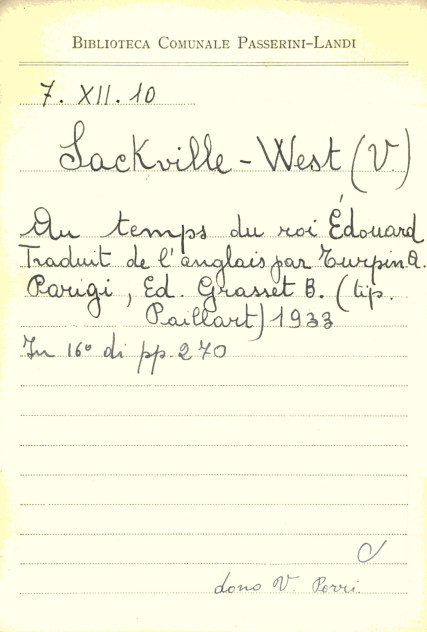 BIBLIOTECA COMUNALE PASSERINI-LANDI
7. XII. 10
Sackville-West (V.)
Au temps du roi Édouard
Traduit de l'anglais par Turpin A.
Parigi, Ed. Grasset B. (tip.
Paillart) 1933
In 16° di pp. 270
dono V. Porri.